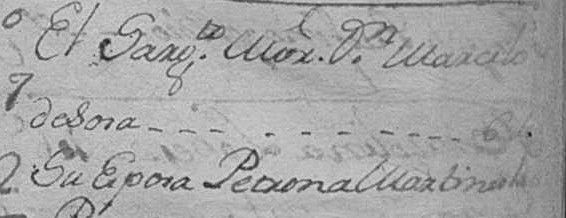 El Sarg.to Mor. Dn Marcelo
de Sosa - - - - - - - - -
Su Esposa Petrona Martine